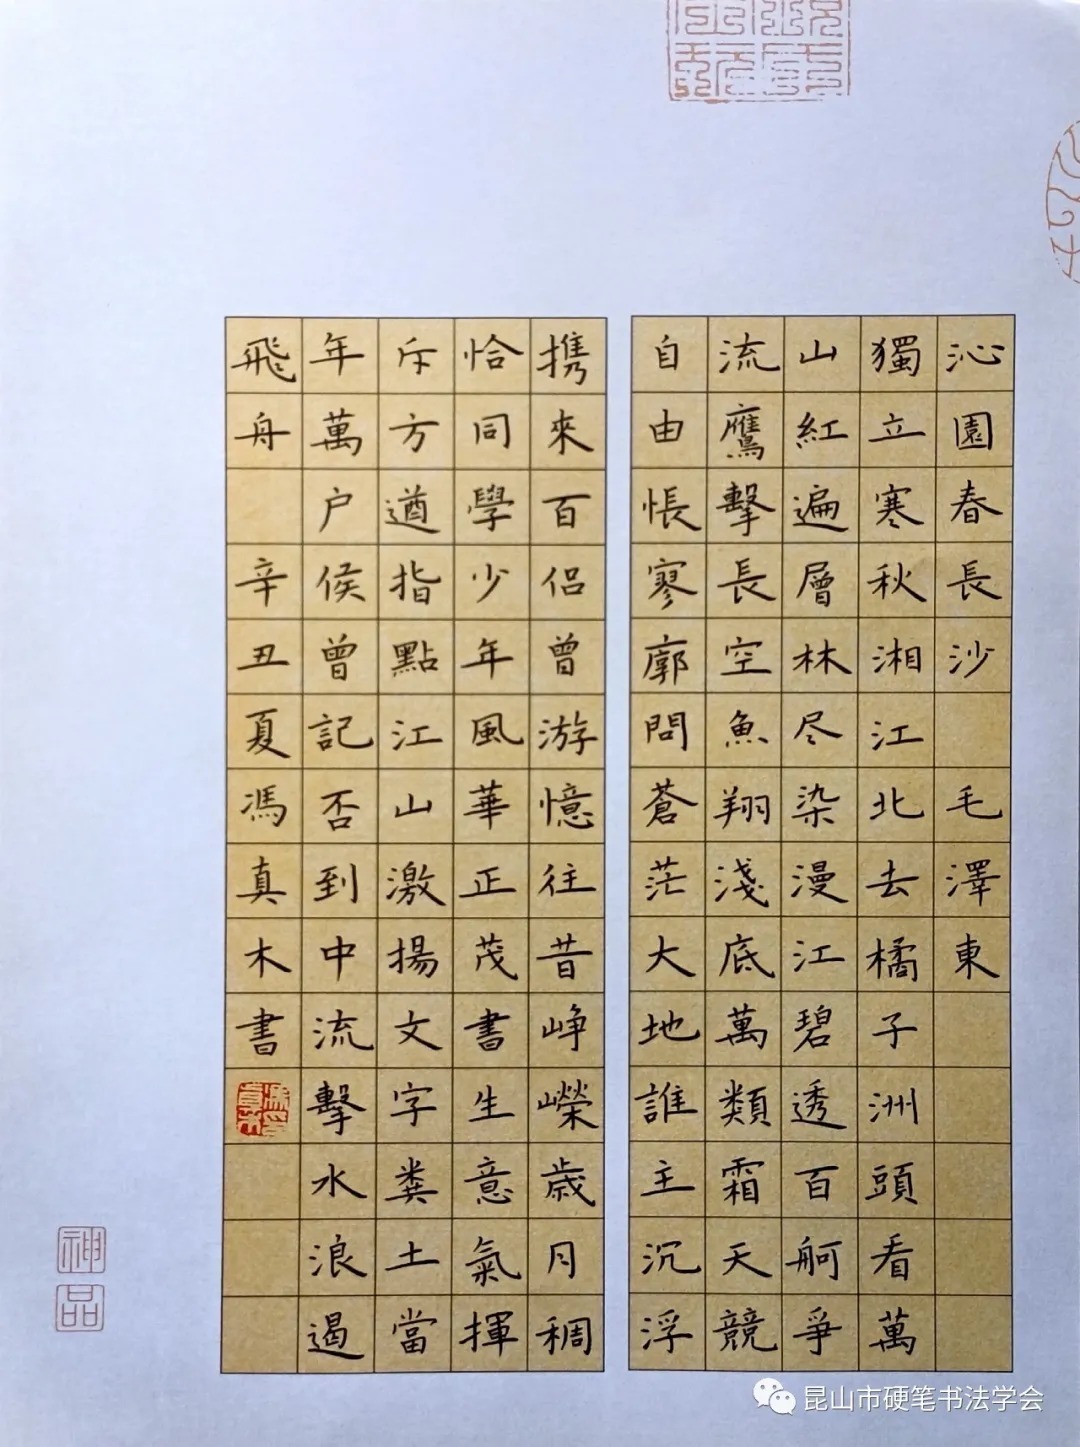 沁園春長沙 毛澤東
獨立寒秋湘江北去橘子洲頭看萬
山紅遍層林尽染漫江碧透百舸爭
流鷹擊長空魚翔淺底萬類霜天競
自由悵寥廓問蒼茫大地誰主沉浮
携來百侣曾游憶往昔峥嶸歲月稠
恰同學少年風華正茂書生意氣揮
斥方遒指點江山激揚文字粪土當
年萬户侯曾記否到中流擊水浪遏
飛舟 辛丑夏馮真木書
神品
昆山市硬笔书法学会